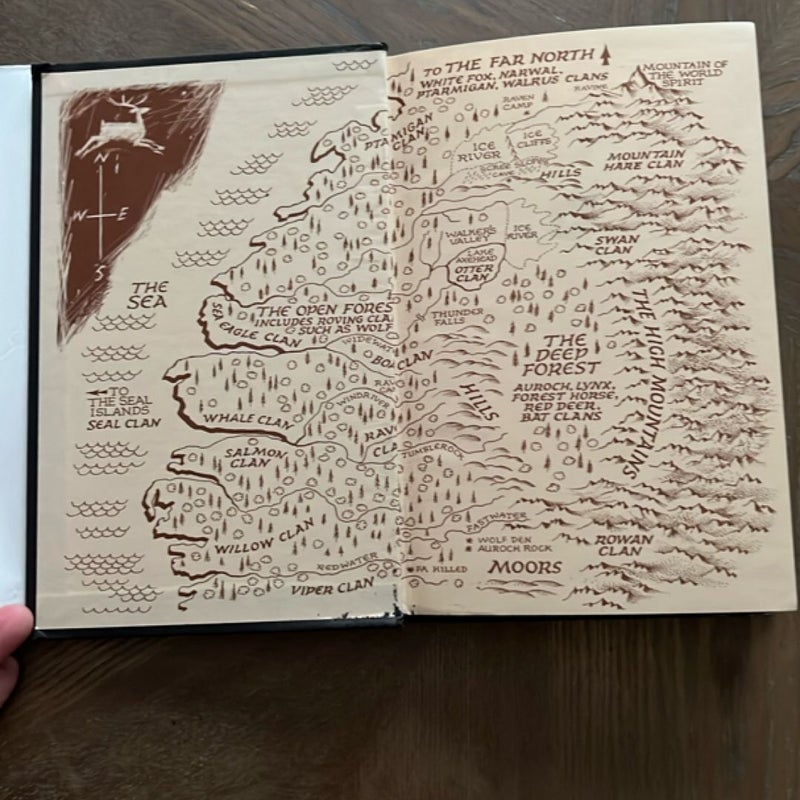 N
W E
S
THE
SEA
TO
THE SEAL
ISLANDS
SEAL CLAN
PTARMIGAN
CLAN
THE OPEN FORES
INCLUDES ROVING CLA
SUCH AS WOLF
SEA EAGLE CLAN
WIDEWAT
BOA CLAN
RAV
WINDRIVER
WHALE CLAN
RAV
CLA
SALMON
CLAN
WILLOW CLAN
REDWATER
VIPER CLAN
TO THE FAR NORTH
WHITE FOX, NARWAL,
PTARMIGAN, WALRUS CLANS
RAVEN
CAMP
RAVINE
MOUNTAIN OF
THE WORLD
SPIRIT
ICE
RIVER
ICE
CLIFFS
CAVE
HILLS
MOUNTAIN
HARE CLAN
WALKER'S
VALLEY
ICE
RIVER
LAKE
AXEHEAD
OTTER
CLAN
SWAN
CLAN
THUNDER
FALLS
THE
DEEP
FOREST
AUROCH, LYNX,
FOREST HORSE,
RED DEER,
BAT CLANS
HILLS
THE HIGH MOUNTAINS
TUMBLEROCK
FASTWATER
WOLF DEN
AUROCH ROCK
ROWAN
CLAN
FA KILLED
MOORS